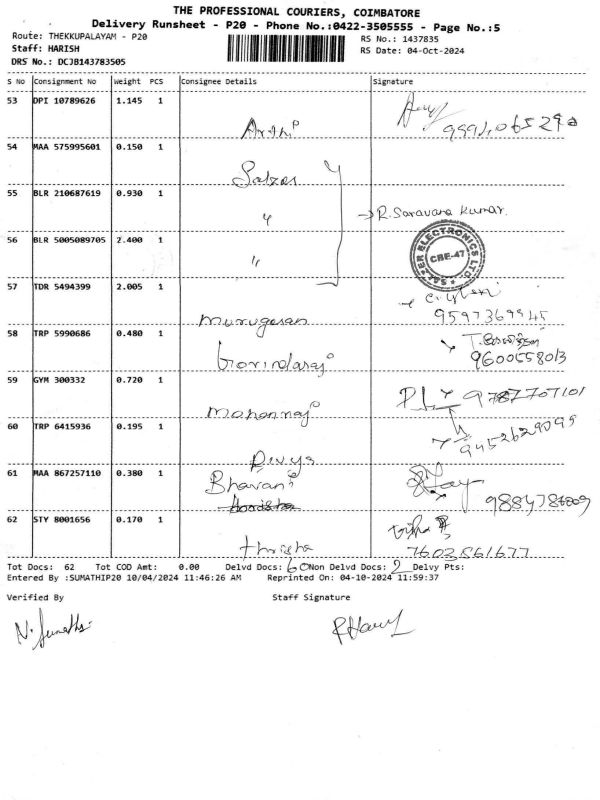 THE PROFESSIONAL COURIERS, COIMBATORE
Delivery Runsheet - P20 - Phone No.:0422-3505555 - Page No.:5
Route: THEKKUPALAYAM - P20
RS No.: 1437835
Staff: HARISH
RS Date: 04-Oct-2024
DRS No.: DCJB143783505
S No Consignment No Weight PCS Consignee Details Signature
53 DPI 10789626 1.145 1
Arthi
54 MAA 575995601 0.150 1
Salzer
55 BLR 210687619 0.930 1
"
→ R. Saravana Kumar.
56 BLR 5005089705 2.400 1
"
SALZER ELECTRONICS LTD.
CBE-47
57 TDR 5494399 2.005 1
Murugesan
9597369945
58 TRP 5990686 0.480 1
Govindaraj
9600558013
59 GYM 300332 0.720 1
Mohanraj
9787707101
60 TRP 6415936 0.195 1
Divya
9452629099
61 MAA 867257110 0.380 1
Bhavani
62 STY 8001656 0.170 1
thrisha
7603861677
Tot Docs: 62 Tot COD Amt: 0.00 Delvd Docs: 60 Non Delvd Docs: 2 Delvy Pts:
Entered By :SUMATHIP20 10/04/2024 11:46:26 AM Reprinted On: 04-10-2024 11:59:37
Verified By Staff Signature